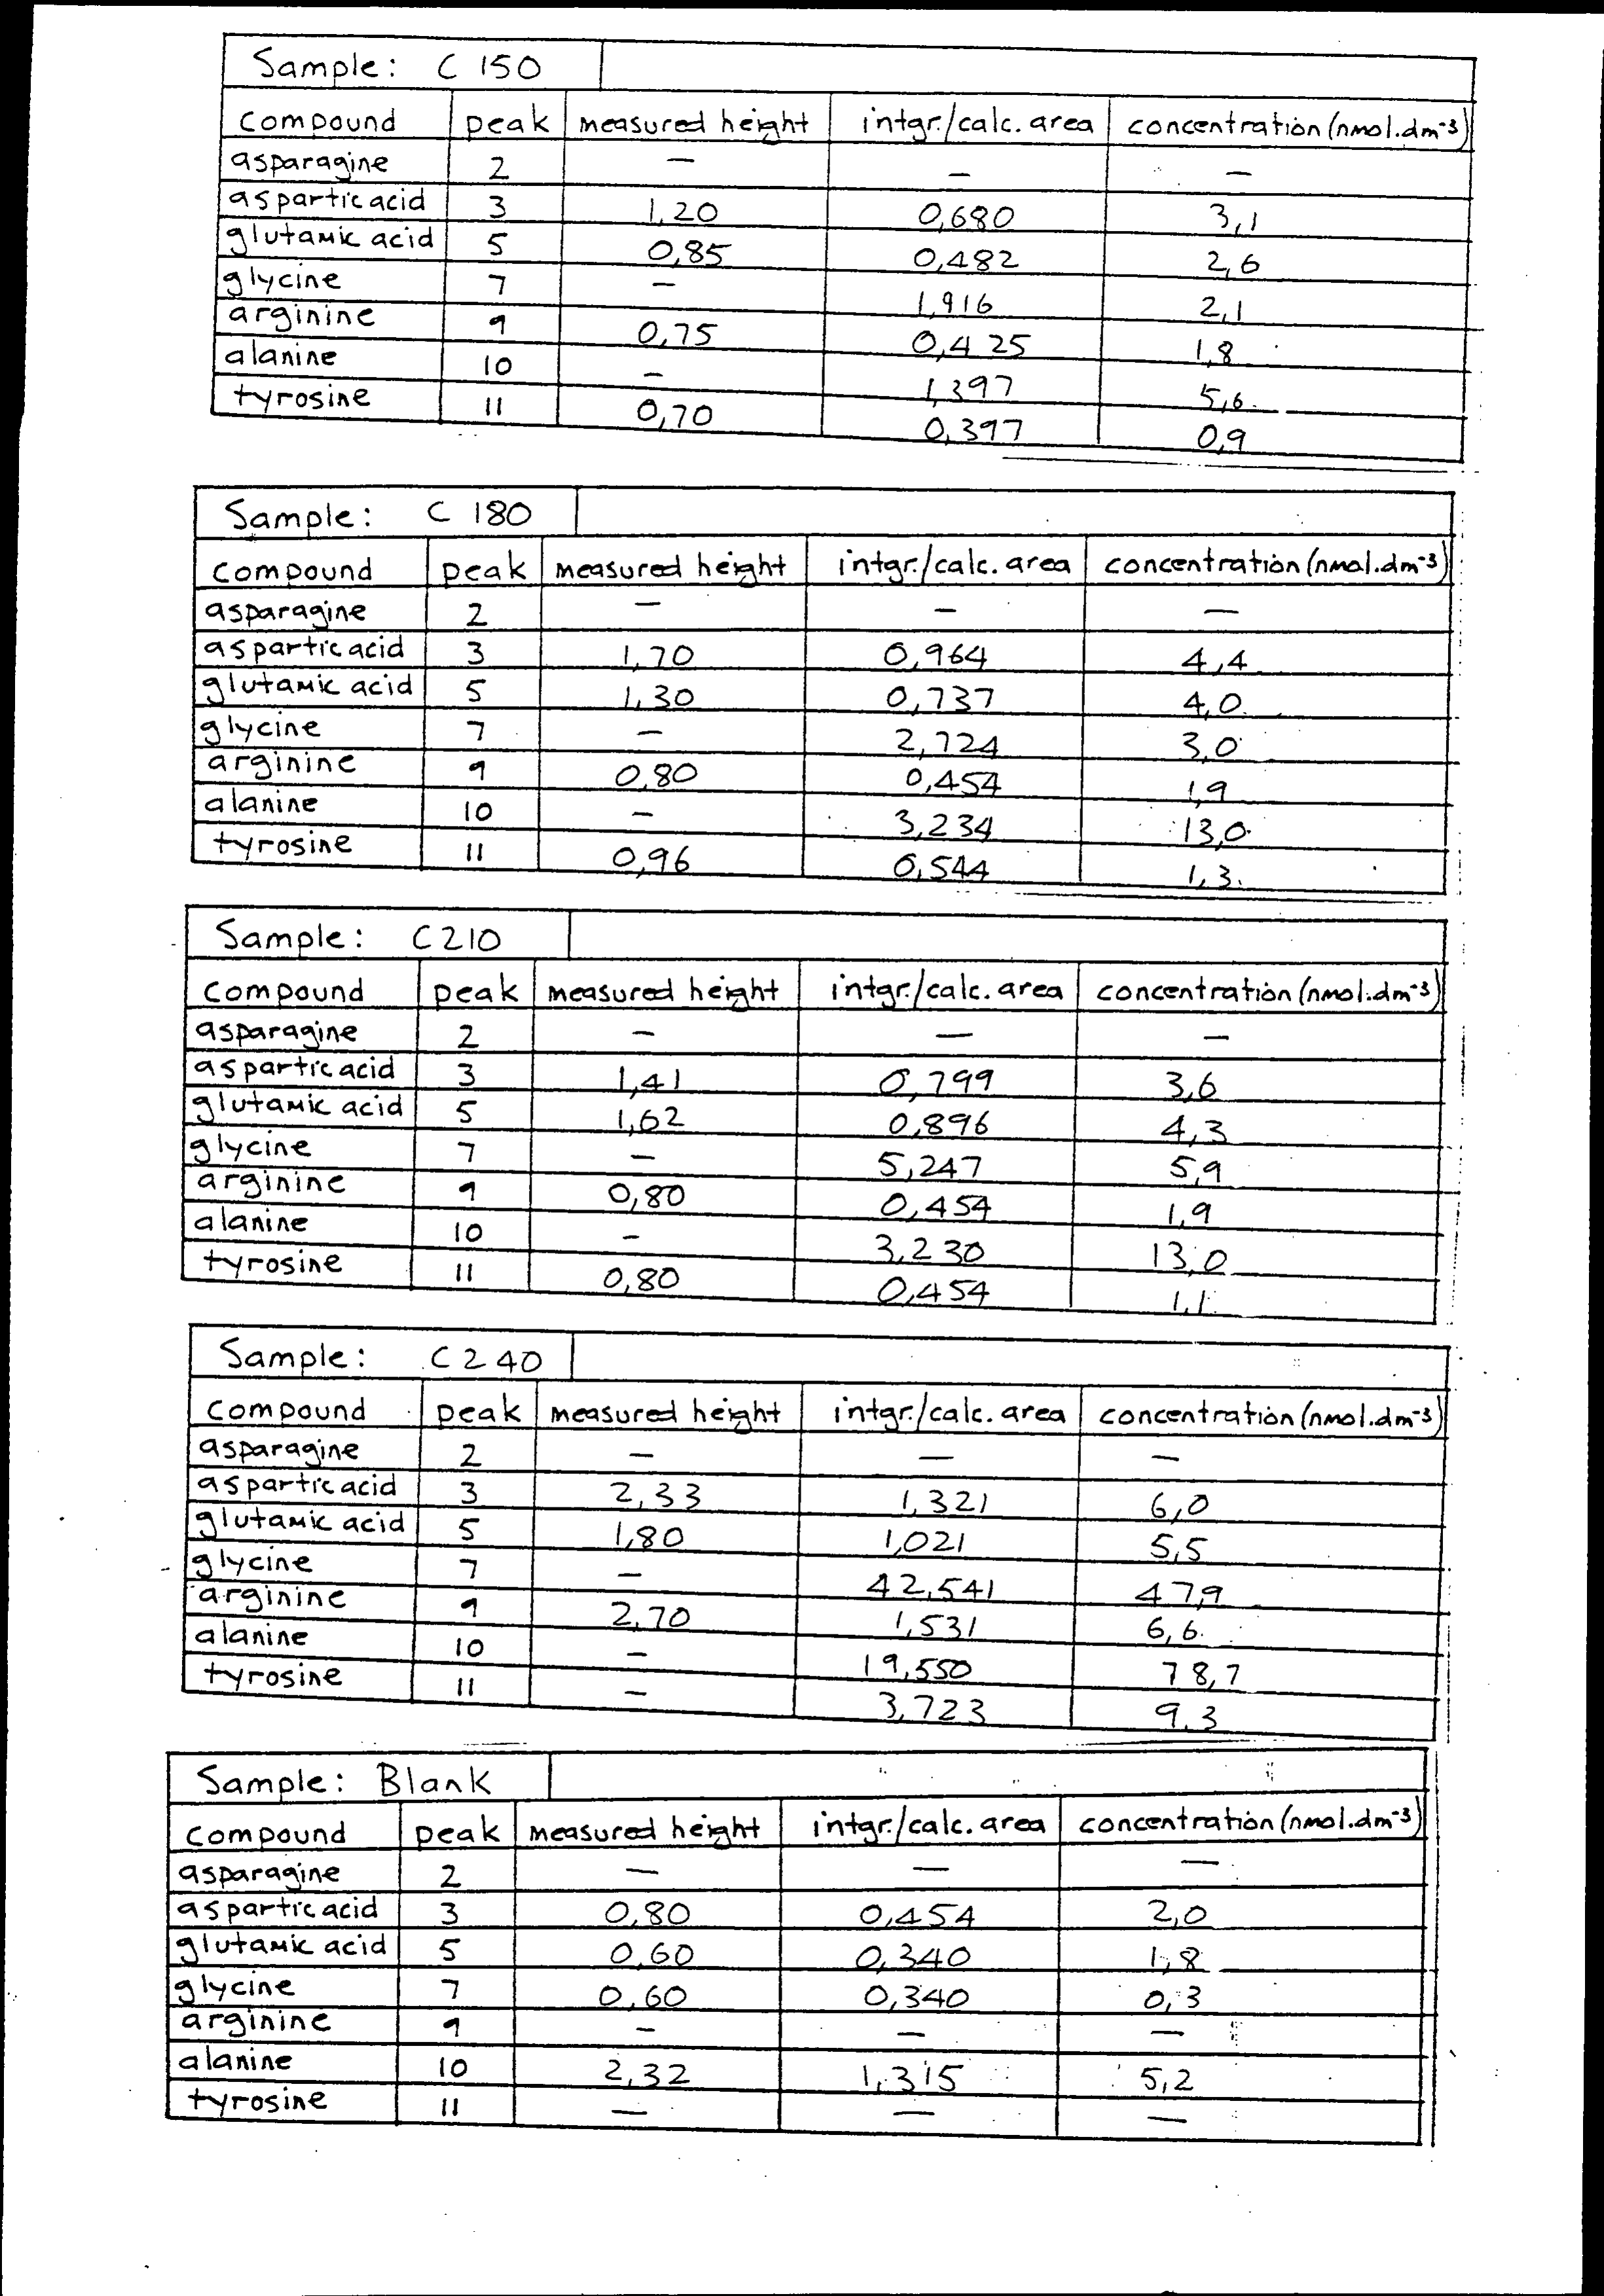 Sample: C 150
compound peak measured height intgr./calc. area concentration (nmol.dm-3)
asparagine 2 — — —
aspartic acid 3 1,20 0,680 3,1
glutamic acid 5 0,85 0,482 2,6
glycine 7 — 1,916 2,1
arginine 9 0,75 0,425 1,8
alanine 10 — 1,397 5,6
tyrosine 11 0,70 0,397 0,9
Sample: C 180
compound peak measured height intgr./calc. area concentration (nmol.dm-3)
asparagine 2 — — —
aspartic acid 3 1,70 0,964 4,4
glutamic acid 5 1,30 0,737 4,0
glycine 7 — 2,724 3,0
arginine 9 0,80 0,454 1,9
alanine 10 — 3,234 13,0
tyrosine 11 0,96 0,544 1,3
Sample: C210
compound peak measured height intgr./calc. area concentration (nmol.dm-3)
asparagine 2 — — —
aspartic acid 3 1,41 0,799 3,6
glutamic acid 5 1,62 0,896 4,3
glycine 7 — 5,247 5,9
arginine 9 0,80 0,454 1,9
alanine 10 — 3,230 13,0
tyrosine 11 0,80 0,454 1,1
Sample: C240
compound peak measured height intgr./calc. area concentration (nmol.dm-3)
asparagine 2 — — —
aspartic acid 3 2,33 1,321 6,0
glutamic acid 5 1,80 1,021 5,5
glycine 7 — 42,541 47,9
arginine 9 2,70 1,531 6,6
alanine 10 — 19,550 78,7
tyrosine 11 — 3,723 9.3
Sample: Blank
compound peak measured height intgr./calc. area concentration (nmol.dm-3)
asparagine 2 — — —
aspartic acid 3 0,80 0,454 2,0
glutamic acid 5 0,60 0,340 1,8
glycine 7 0,60 0,340 0,3
arginine 9 — — —
alanine 10 2,32 1,315 5,2
tyrosine 11 — — —